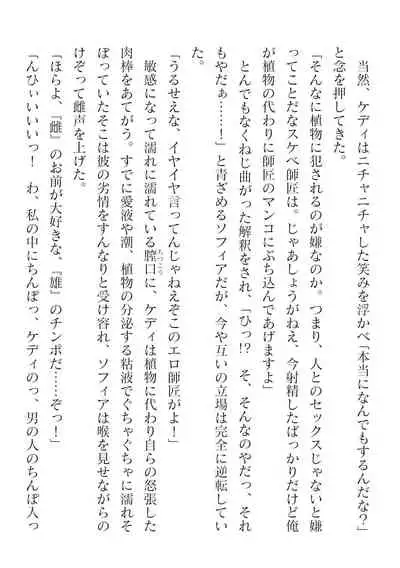 当然、ケディはニチャニチャした笑みを浮かべ「本当になんでもするんだな?」
と念を押してきた。
「そんなに植物に犯されるのが嫌なのか。つまり、人とのセックスじゃないと嫌
ってことだなスケベ師匠は。じゃあしょうがねえ、今射精したばっかりだけど俺
が植物の代わりに師匠のマンコにぶち込んであげますよ」
とんでもなくねじ曲がった解釈をされ、「ひっ!?　そ、そんなのやだっ、それ
もやだぁ……!」と青ざめるソフィアだが、今や互いの立場は完全に逆転してい
た。
「うるせえな、イヤイヤ言ってんじゃねえぞこのエロ師匠がよ!」
敏感になって濡れに濡れている膣口に、ケディは植物に代わり自らの怒張した
肉棒をあてがう。すでに愛液や潮、植物の分泌する粘液でぐちゃぐちゃに濡れそ
ぼっていたそこは彼の劣情をすんなりと受け容れ、ソフィアは喉を見せながらの
けぞって雌声を上げた。
「ほらよ、『雌』のお前が大好きな、『雄』のチンポだ……ぞっ!」
「んひぃいいいいっ!　わ、私の中にちんぽっ、ケディのっ、男の人のちんぽ入っ